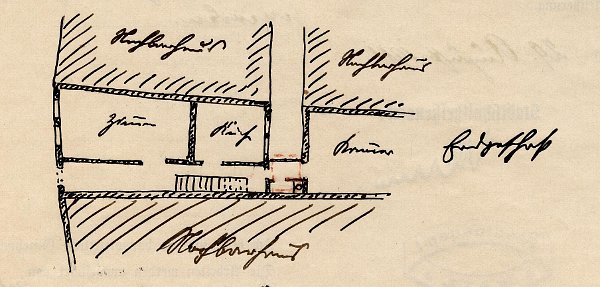 Nachbarhaus
Nachbarhaus
Zimmer
Küche
Kammer
Erdgeschoß
Nachbarhaus